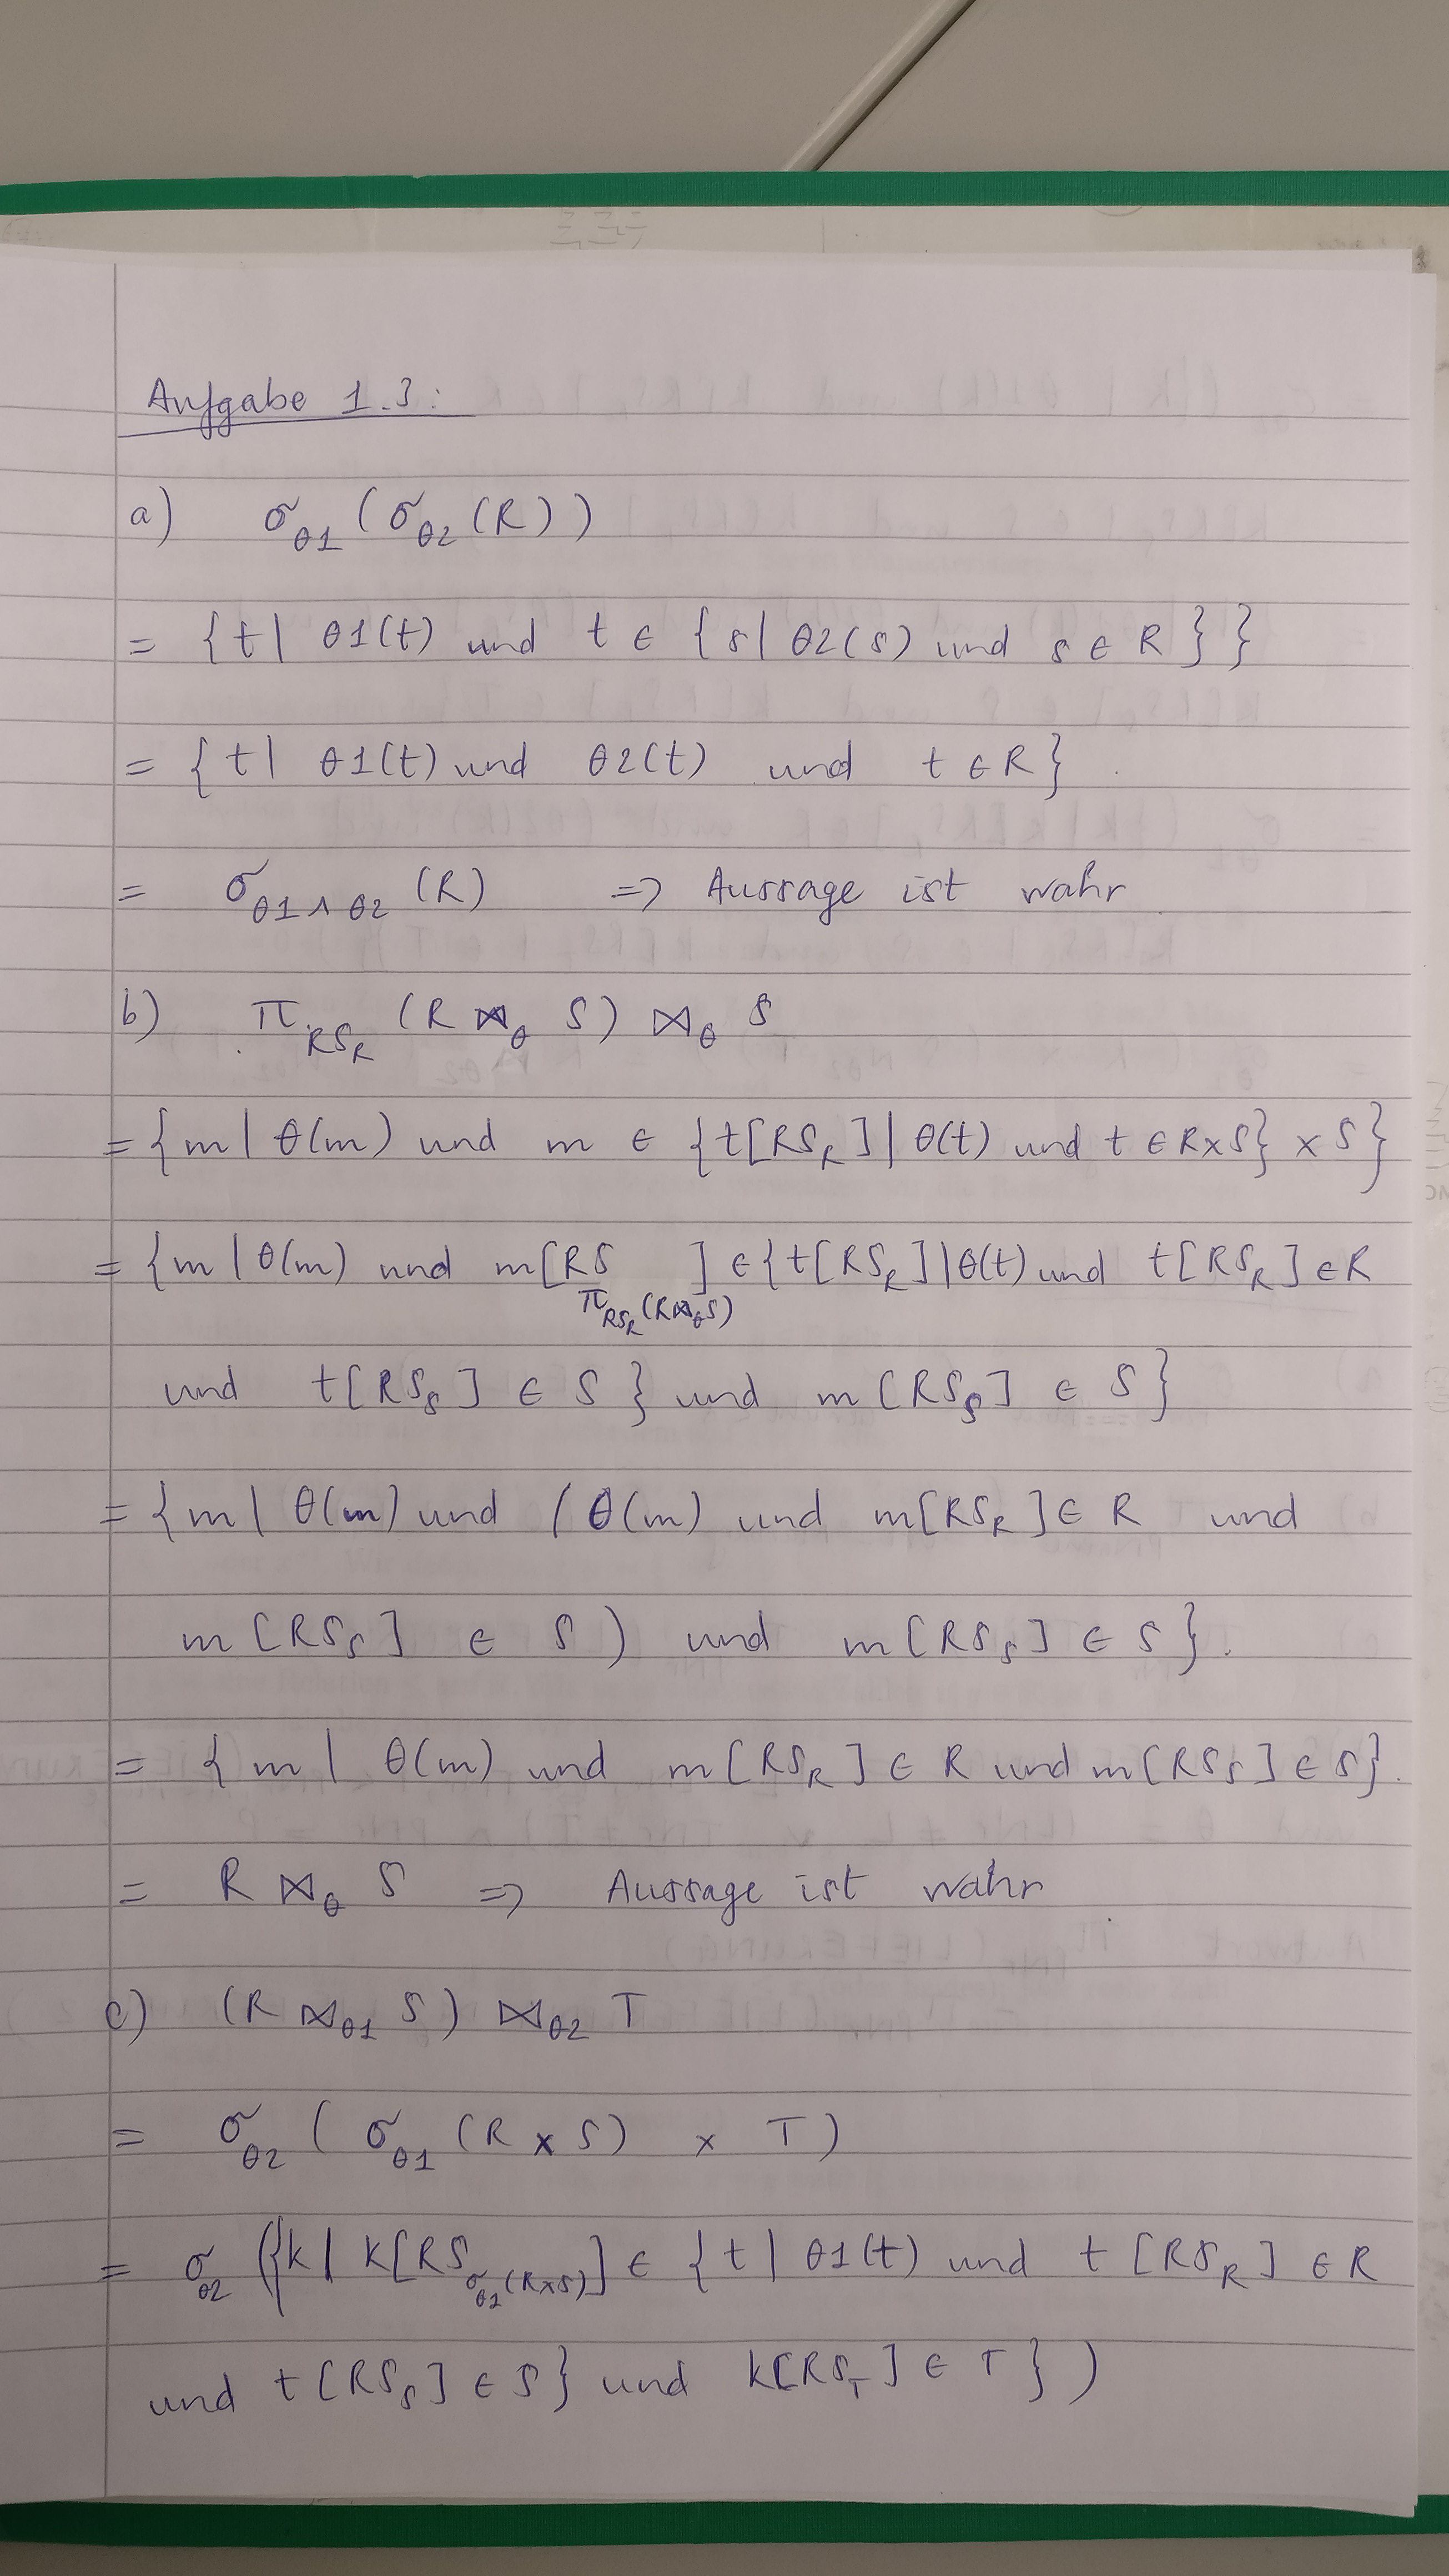 Aufgabe 1.3:
a) σ_θ1 (σ_θ2 (R))
= {t | θ1(t) und t ∈ {s | θ2(s) und s ∈ R}}
= {t | θ1(t) und θ2(t) und t ∈ R}
= σ_θ1∧θ2 (R) => Aussage ist wahr
b) π_RS_R (R ⋈_θ S) ⋈_θ S
= {m | θ(m) und m ∈ {t[RS_R] | θ(t) und t ∈ R×S} × S}
= {m | θ(m) und m[RS_π_RS_R(R⋈_θ S)] ∈ {t[RS_R] | θ(t) und t[RS_R] ∈ R
und t[RS_S] ∈ S} und m[RS_S] ∈ S}
= {m | θ(m) und (θ(m) und m[RS_R] ∈ R und
m[RS_S] ∈ S) und m[RS_S] ∈ S}.
= {m | θ(m) und m[RS_R] ∈ R und m[RS_S] ∈ S}.
= R ⋈_θ S => Aussage ist wahr
c) (R ⋈_θ1 S) ⋈_θ2 T
= σ_θ2 (σ_θ1 (R × S) × T)
= σ_θ2 ({k | k[RS_σ_θ1(R×S)] ∈ {t | θ1(t) und t[RS_R] ∈ R
und t[RS_S] ∈ S} und k[RS_T] ∈ T})